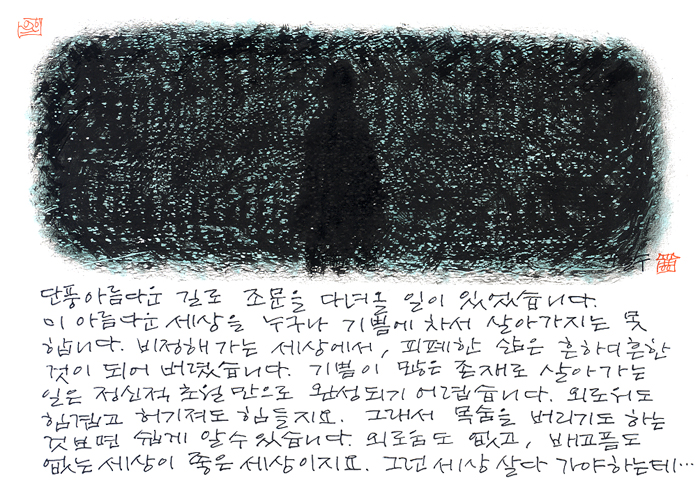 단풍아름다운 길로 조문을 다녀올 일이 있었습니다.
이 아름다운 세상을 누구나 기쁨에 차서 살아가지는 못
합니다. 비정해가는 세상에서, 피폐한 삶은 흔하디흔한
것이 되어 버렸습니다. 기쁨이 많은 존재로 살아가는
일은 정신적 초월만으로 완성되기 어렵습니다. 외로워도
힘겹고 허기져도 힘들지요. 그래서 목숨을 버리기도 하는
것 보면 쉽게 알 수 있습니다. 외로움도 없고, 배고픔도
없는 세상이 좋은 세상이지요. 그런 세상 살다 가야하는데…